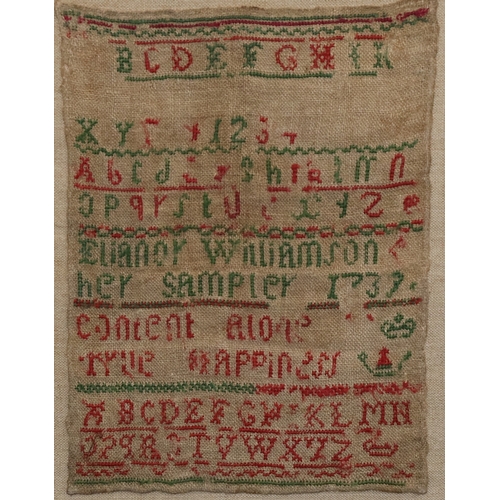 B C D E F G H I K
X Y 1 2 3
A b c d h i k l m n
o p q r s t u x y z
Elianor Williamson
her sampler 1737
content alone
true HAPPiness
A B C D E F G H I K L M N
O P Q R S T V W X Y Z